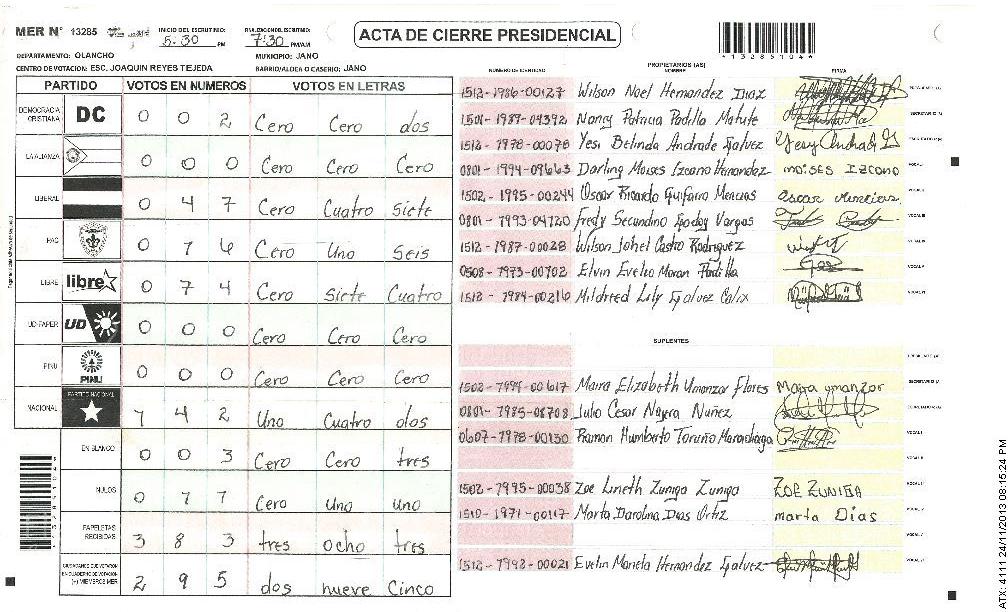 MER N° 13285 INICIO DEL ESCRUTINIO: 5:30 PM FINALIZACION ESCRUTINIO: 7:30 PM/AM
ACTA DE CIERRE PRESIDENCIAL
DEPARTAMENTO: OLANCHO MUNICIPIO: JANO
CENTRO DE VOTACION: ESC. JOAQUIN REYES TEJEDA BARRIO/ALDEA O CASERIO: JANO
PARTIDO VOTOS EN NUMEROS VOTOS EN LETRAS
DEMOCRACIA CRISTIANA DC 0 0 2 Cero Cero dos
LA ALIANZA 0 0 0 Cero Cero Cero
LIBERAL 0 4 7 Cero Cuatro Siete
PAC 0 1 6 Cero Uno Seis
LIBRE libre 0 7 4 Cero siete Cuatro
UD-FAPER UD 0 0 0 Cero Cero Cero
PINU PINU 0 0 0 Cero Cero Cero
NACIONAL PARTIDO NACIONAL 1 4 2 Uno Cuatro dos
EN BLANCO 0 0 3 Cero Cero tres
NULOS 0 1 1 Cero Uno uno
PAPELETAS RECIBIDAS 3 8 3 tres ocho tres
CIUDADANOS QUE VOTARON EN CUADERNO DE VOTACION (+) MIEMBROS MER 2 9 5 dos nueve Cinco
PROPIETARIOS (AS)
NUMERO DE IDENTIDAD NOMBRE FIRMA
1512-1986-00127 Wilson Noel Hernandez Diaz
1501-1987-04392 Nancy Patricia Padilla Matute
1512-1978-00078 Yesi Belinda Andrade Galvez
0801-1994-09663 Darling Moises Izcano Hernandez moises Izcono
1502-1995-00244 Oscar Ricardo Guifarro Mencias oscar mencias
0801-1993-04720 Fredy Secundino Godoy Vargas
1512-1987-00028 Wilson Johel Castro Rodriguez
0508-1973-00702 Elvin Evelio Moran Padilla
1512-1984-00216 Mildred Lily Galvez Calix
SUPLENTES
1502-1994-00617 Maira Elizabeth Umanzor Flores Maira umanzor
0801-1985-08708 Julio Cesar Najera Nuñez
0607-1978-00130 Ramon Humberto Toruño Maradiaga
1502-1995-00038 Zoe Lineth Zuniga Zuniga ZOE ZUNIGA
1510-1971-00117 Marta Carolina Dias Ortiz marta Dias
1512-1992-00021 Evelin Mariela Hernandez Galvez
ATX: 4111 24/11/2013 08:15:24 PM